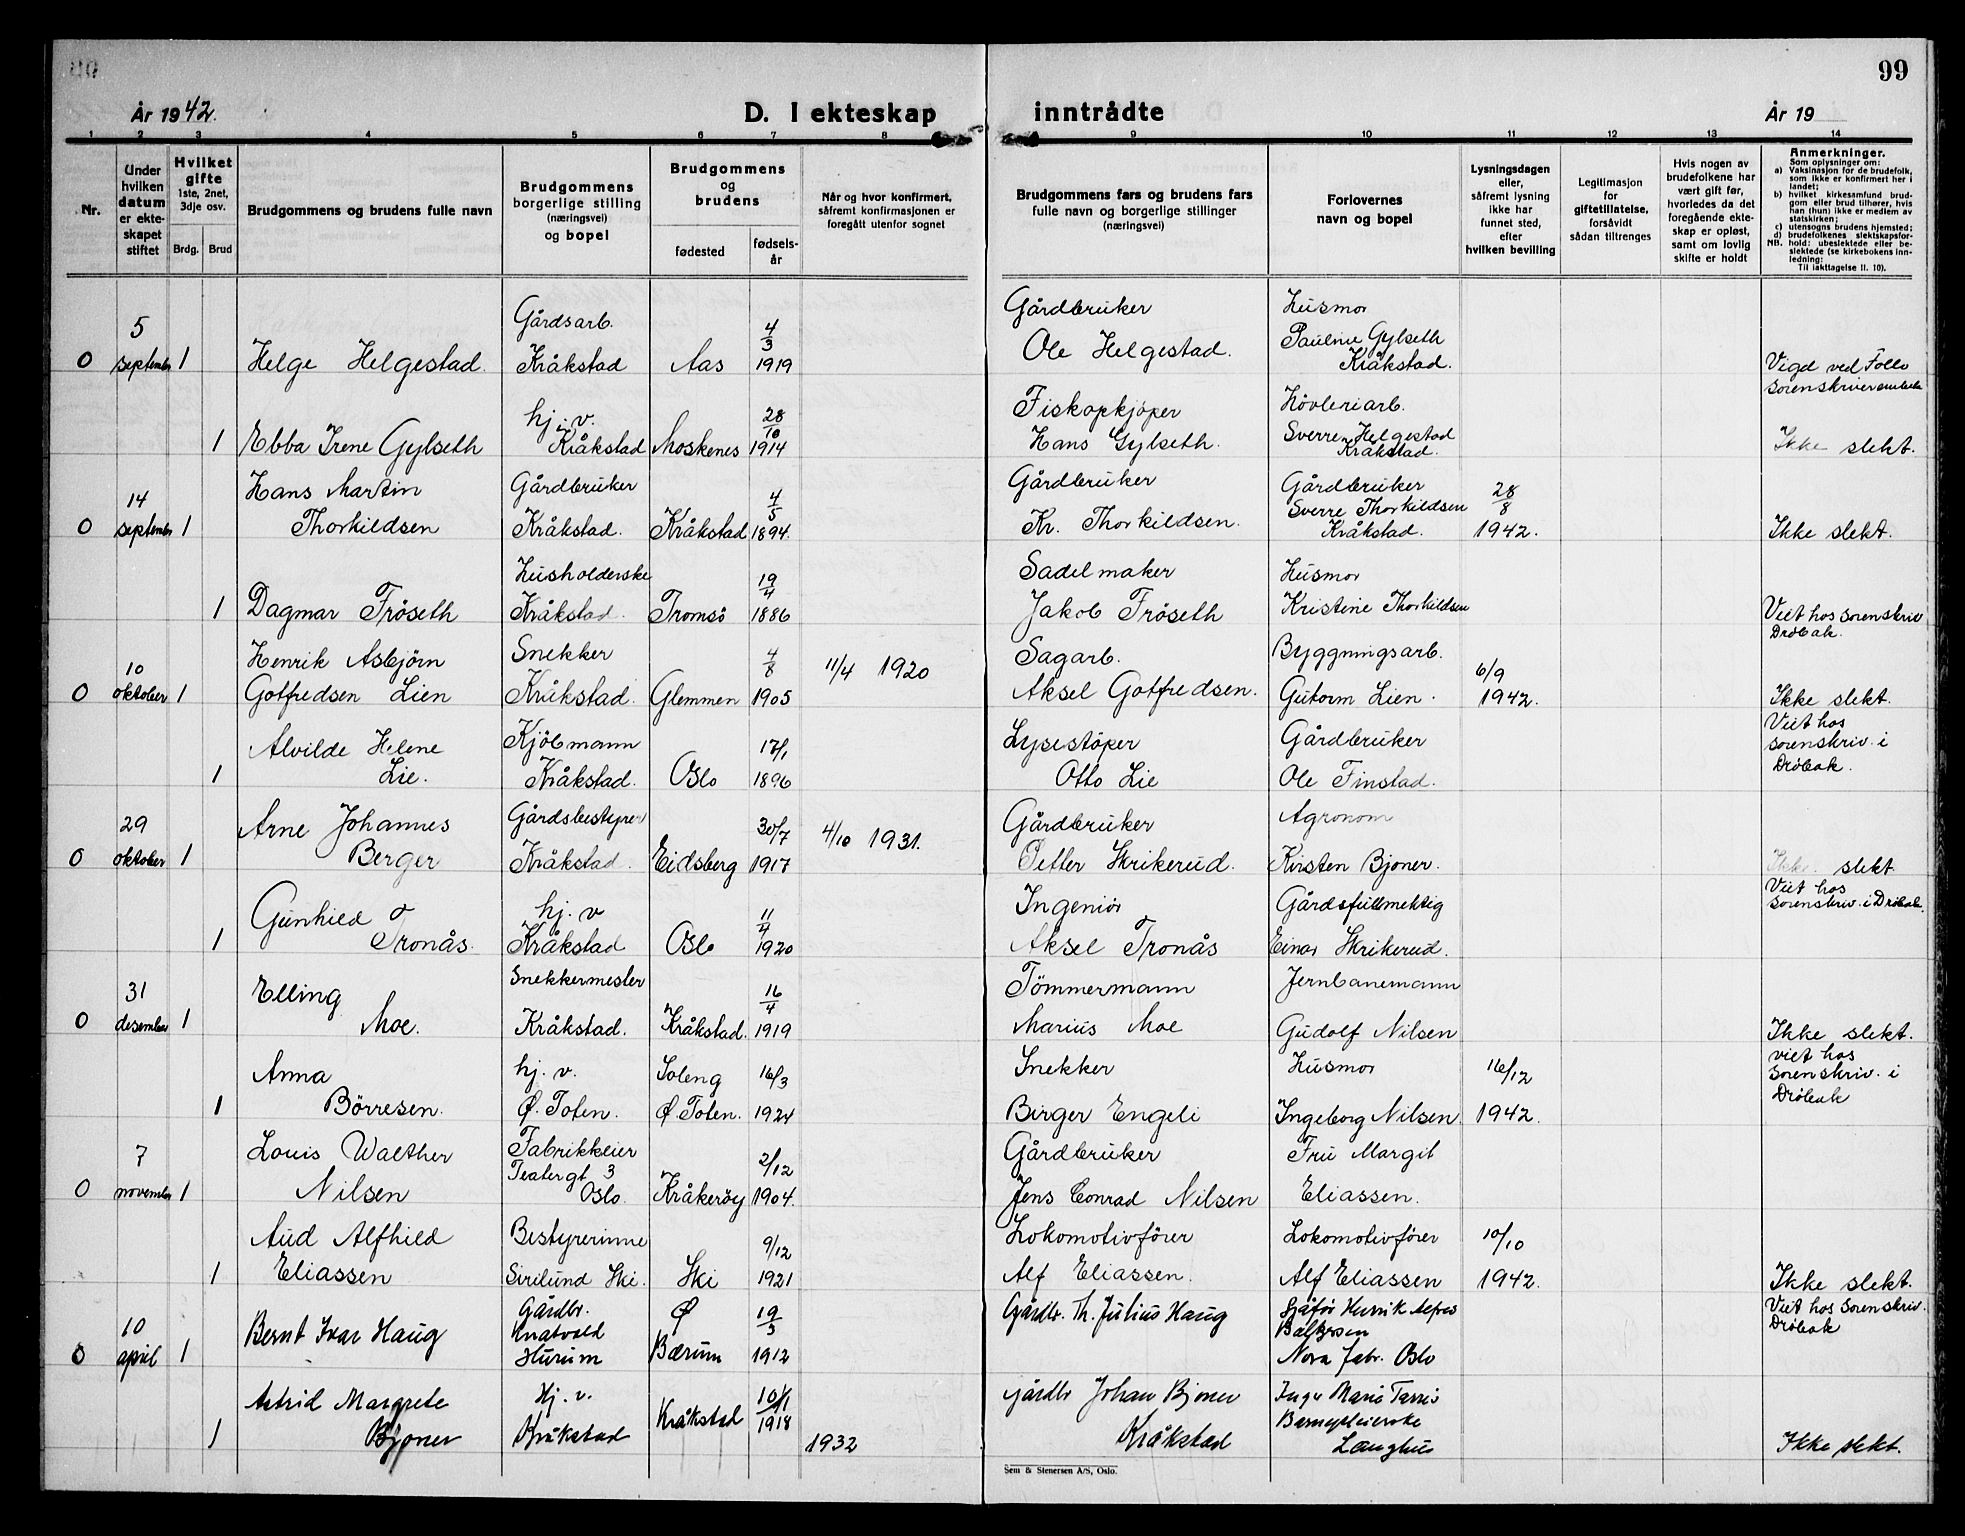 99
År 1942.
D. I ekteskap
inntrådte
År 19
1 2 3 4 5 6 7 8 9 10 11 12 13 14
Nr.
Under
hvilken
datum
er ekte-
skapet
stiftet
Hvilket
gifte
1ste, 2net,
3dje osv.
Brdg. Brud
Brudgommens og brudens fulle navn
Brudgommens
borgerlige stilling
(næringsvei)
og bopel
Brudgommens
og
brudens
fødested
fødsels-
år
Når og hvor konfirmert,
såfremt konfirmasjonen er
foregått utenfor sognet
Brudgommens fars og brudens fars
fulle navn og borgerlige stillinger
(næringsvei)
Forlovernes
navn og bopel
Lysningsdagen
eller,
såfremt lysning
ikke har
funnet sted,
efter
hvilken bevilling
Legitimasjon
for
giftetillatelse,
forsåvidt
sådan tiltrenges
Hvis nogen av
brudefolkene har
vært gift før,
hvorledes da det
foregående ekte-
skap er opløst,
samt om lovlig
skifte er holdt
Anmerkninger.
Som oplysninger om:
a) Vaksinasjon for de brudefolk,
som ikke er konfirmert her i
landet;
b) hvilket kirkesamfund brud-
gom eller brud tilhører, hvis
han (hun) ikke er medlem av
statskirken;
c) utensogns brudens hjemsted;
d) brudefolkenes slektskapsfor-
NB. hold: ubeslektede eller be-
slektede (se kirkebokens inn-
ledning:
Til iakttagelse II. 10).
5 Gårdsarb. 4/3 Gårdbruker Husmor
Pauline Gylseth
0 september 1 Helge Helgestad. Kråkstad Aas 1919 Ole Helgestad. Kråkstad. Vigd ved Follo
sorenskriverembete
hj. v. 28/10 Fiskopkjøper Høvleriarb.
1 Ebba Irene Gylseth Kråkstad Moskenes 1914 Hans Gylseth. Sverre Helgestad Ikke slekt.
Kråkstad.
14 Hans Martin Gårdbruker 4/5 Gårdbruker Gårdbruker 28/8
Sverre Thorkildsen
0 september 1 Thorkildsen Kråkstad. Kråkstad 1894. Kr. Thorkildsen. Kråkstad. 1942. Ikke slekt.
Husholderske 19/4 Sadelmaker Husmor
1 Dagmar Fröseth Kråkstad. Tromsö 1886 Jakob Fröseth Kristine Thorkildsen Viet hos sorenskriv
Dröbak.
10 Henrik Asbjörn Snekker 4/8 11/4 1920 Sagarb. Byggningsarb. 6/9
0 oktober 1 Gotfredsen Lien Kråkstad. Glemmen 1905 Aksel Gotfredsen. Gutorm Lien. 1942. Ikke slekt.
Viet hos
Alvilde Helene Kjöbmann 17/1 Lysestöper Gårdbruker sorenskriv. i
1 Lie. Kråkstad. Oslo 1896 Otto Lie Ole Finstad. Dröbak.
29 Arne Johannes Gårdsbestyrer 30/7 4/10 1931. Gårdbruker Agronom
0 oktober 1 Berger Kråkstad. Eidsberg 1917 Petter Skrikerud. Kirsten Bjoner. Ikke slekt.
Viet hos
Gunhild hj. v 11/4 Ingeniör Gårdsfullmektig sorenskriv. i Dröbak.
1 Tronås. Kråkstad Oslo 1920 Aksel Tronås Einar Skrikerud.
31 Elling Snekkermester 16/4 Tömmermann Jernbanemann
0 desember 1 Moe. Kråkstad. Kråkstad. 1919 Marius Moe Gudolf Nilsen Ikke slekt.
viet hos
Anna hj. v. Soleng 16/3 Snekker Husmor 16/12 Sorenskriv. i
1 Börresen. Ø. Toten. Ø. Toten. 1924 Birger Engeli Ingeborg Nilsen. 1942. Dröbak
7 Louis Walther Fabrikkeier 2/12 Gårdbruker Fru Margit
Teatergt 3
0 november 1 Nilsen Oslo. Kråkerøy 1904. Jens Conrad Nilsen Eliassen.
Aud Alfhild Bestyrerinne 9/12 Lokomotivfører Lokomotivfører 10/10
1 Eliassen Sirilund Ski. Ski 1921 Alf Eliassen. Alf Eliassen 1942. Ikke slekt.
10 Bernt Ivar Haug Gårdbr. Ø 19/3 Gårdbr. Th. Julius Haug Sjåför Henrik Viet hos Sorenskriv.
Dröbak
0 april 1 Hurum Bærum 1912 Nora fabr. Oslo
Astrid Margrete Hj. v. 10/11 Gårdbr Johan Bjoner Inger Marie
1 Bjoner Kråkstad Kråkstad 1918 1932 Kråkstad Barnepleierske
Langhus Ikke slekt.
Sem & Stenersen A/S, Oslo.